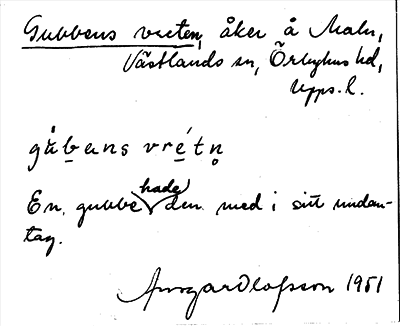 Gubbens vreten, åker å Malu,
Västlands sn, Örbyhus hd,
Upps. l.
gu̇̀bens vrétn̥
En gubbe hade den med i sitt undan-
tag.
Ansgar Olofsson 1951